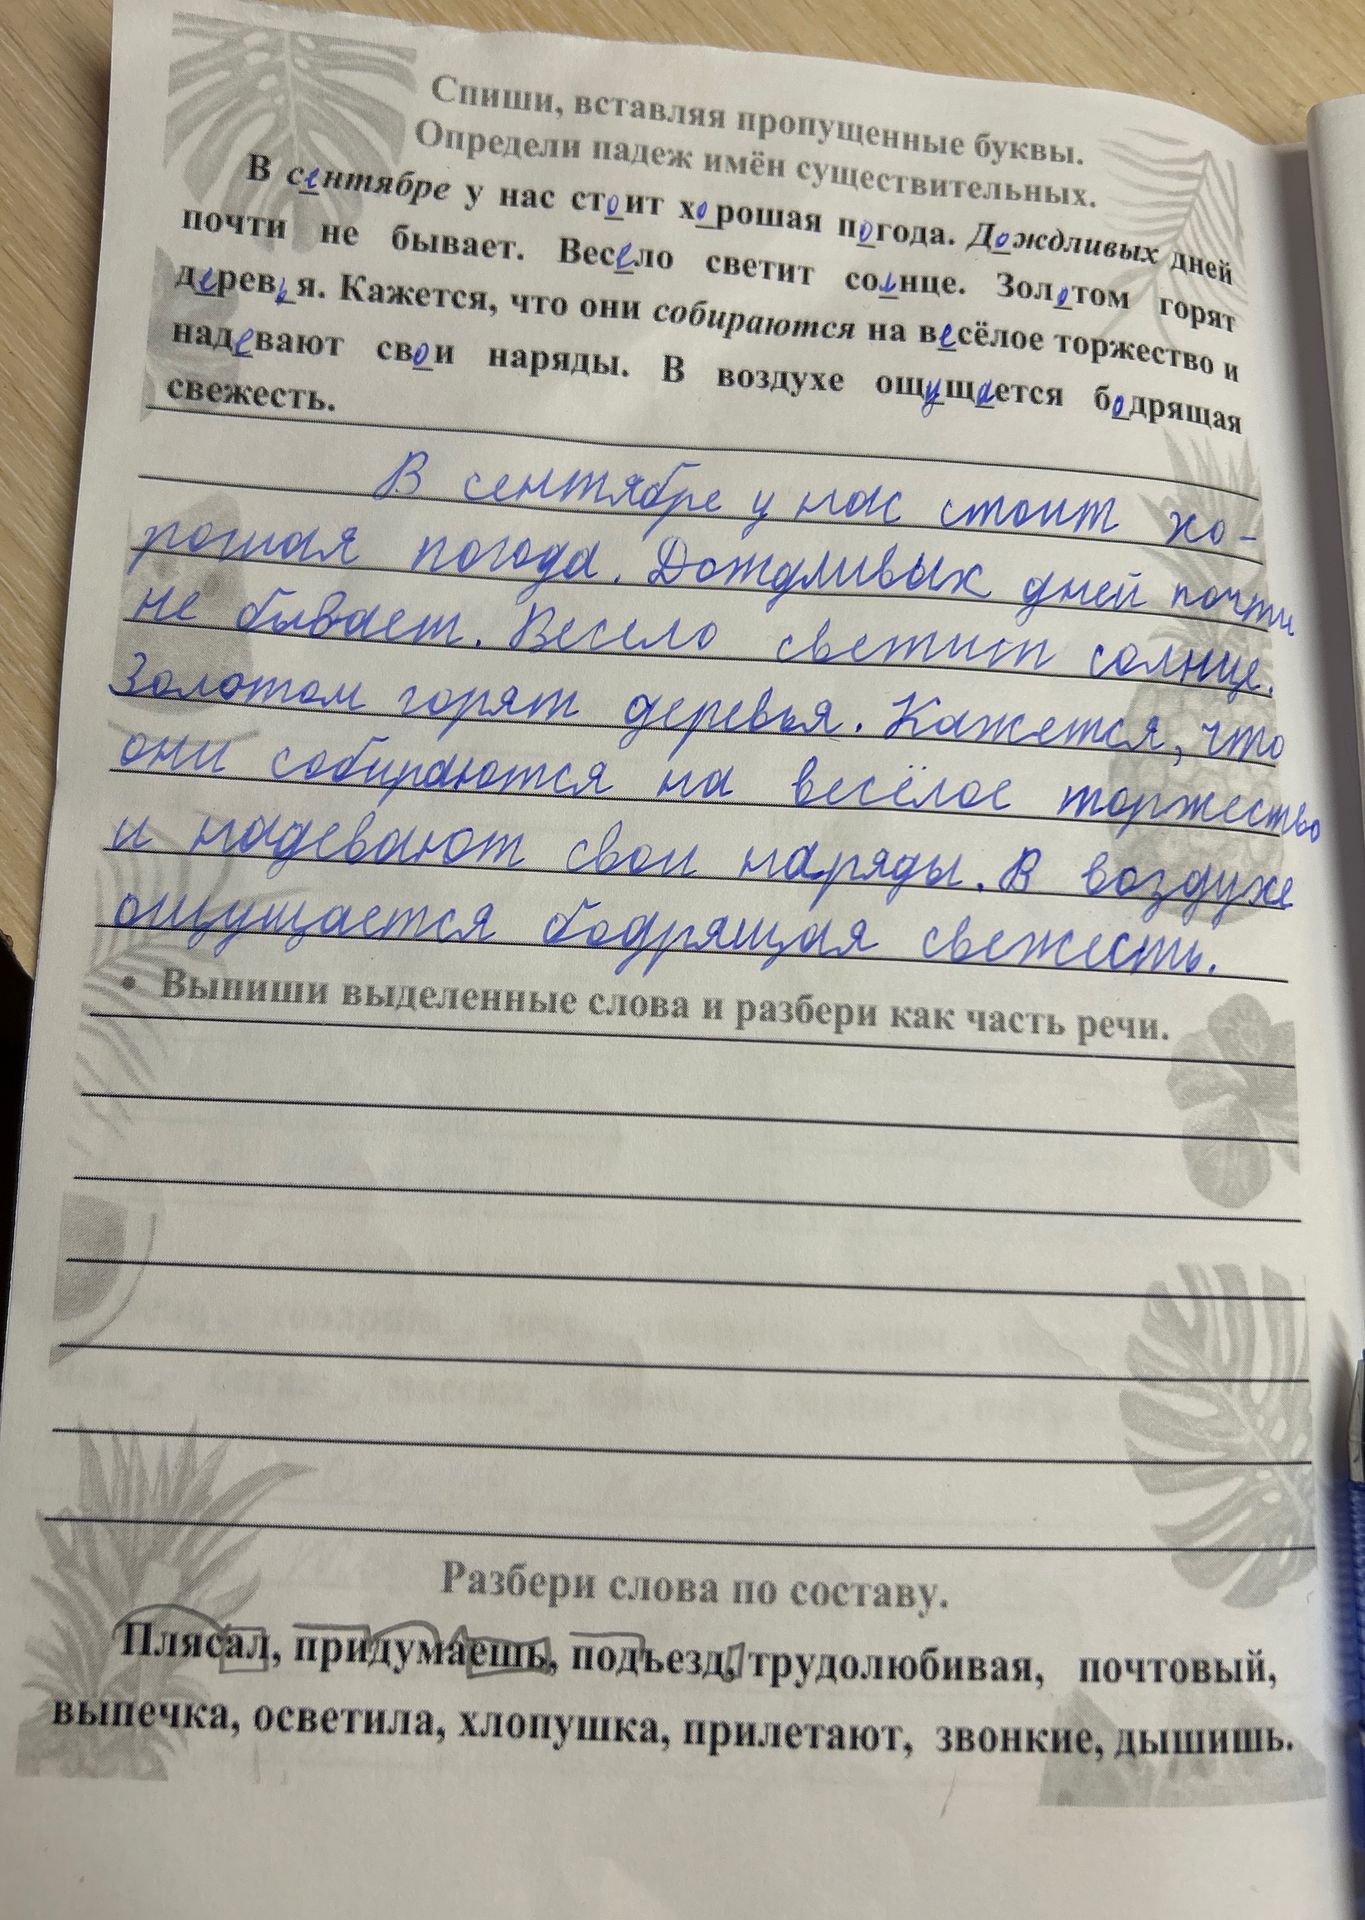 Спиши, вставляя пропущенные буквы.
Определи падеж имён существительных.
В сентябре у нас стоит хорошая погода. Дождливых дней
почти не бывает. Весело светит солнце. Золотом горят
деревья. Кажется, что они собираются на весёлое торжество и
надевают свои наряды. В воздухе ощущается бодрящая
свежесть.
В сентябре у нас стоит хо-
рошая погода. Дождливых дней почти
не бывает. Весело светит солнце.
Золотом горят деревья. Кажется, что
они собираются на весёлое торжество
и надевают свои наряды. В воздухе
ощущается бодрящая свежесть.
• Выпиши выделенные слова и разбери как часть речи.
Разбери слова по составу.
Плясал, придумаешь, подъезд, трудолюбивая, почтовый,
выпечка, осветила, хлопушка, прилетают, звонкие, дышишь.